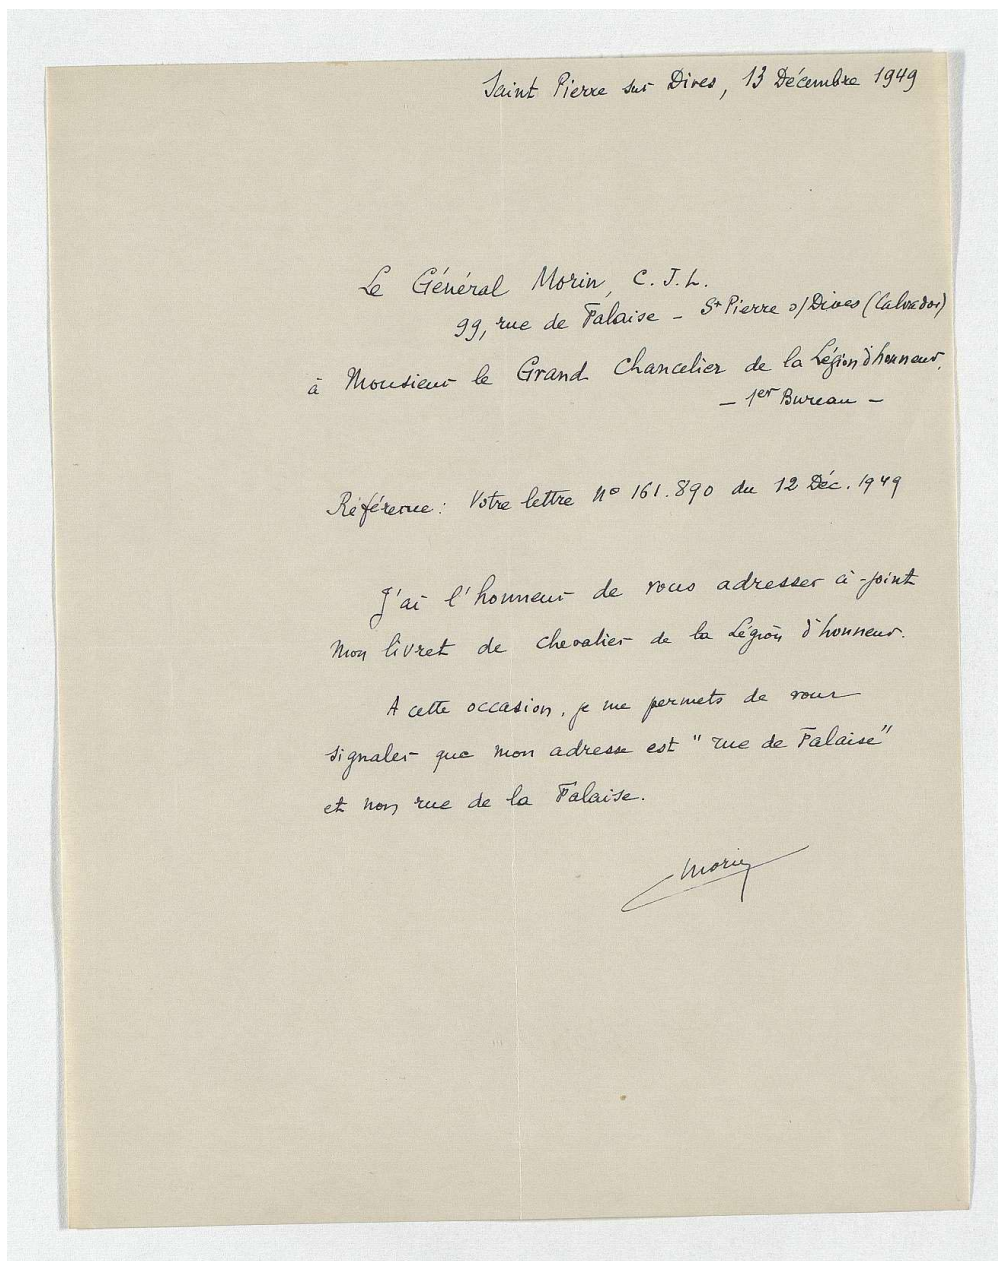 Saint Pierre sur Dives, 13 Décembre 1949
Le Général Morin, C. J. L.
99, rue de Falaise - St Pierre s/Dives (Calvados)
à Monsieur le Grand Chancelier de la Légion d'honneur.
- 1er Bureau -
Référence : Votre lettre N° 161.890 du 12 Déc. 1949
J'ai l'honneur de vous adresser ci-joint
mon livret de chevalier de la Légion d'honneur.
A cette occasion, je me permets de vous
signaler que mon adresse est "rue de Falaise"
et non rue de la Falaise.
Morin